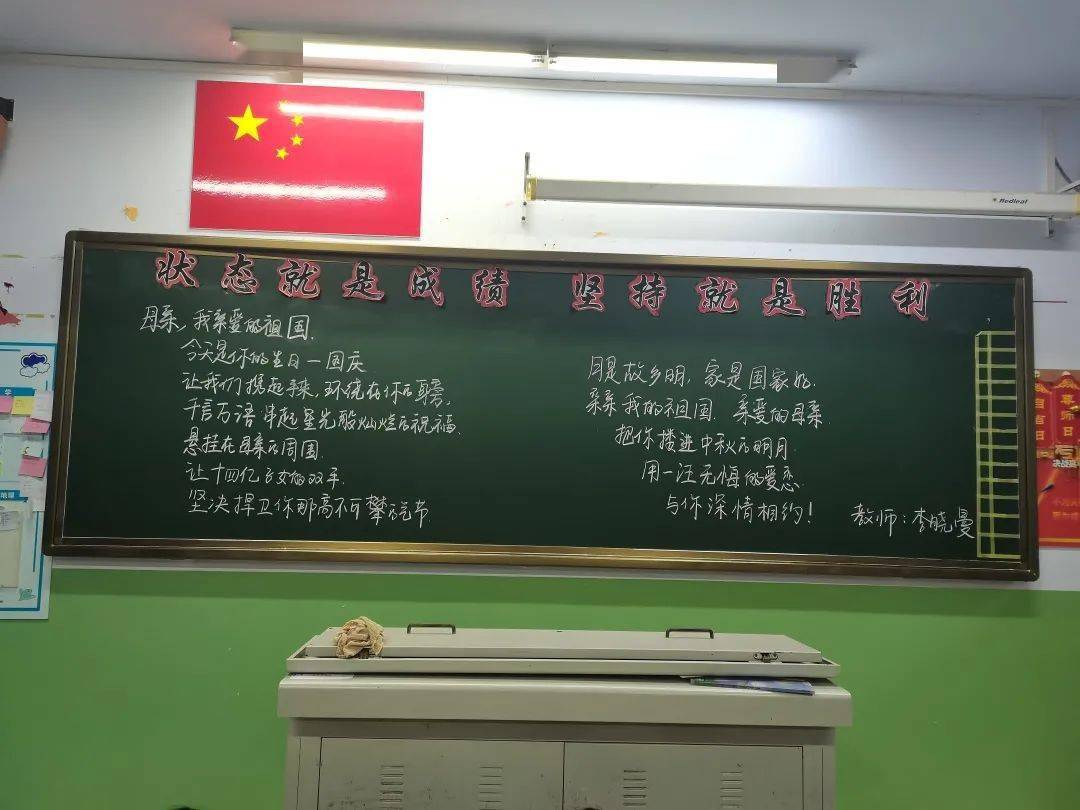 状态就是成绩 坚持就是胜利
母亲,我亲爱的祖国.
今天是你的生日—国庆
让我们携起手来,环绕在你的身旁,
千言万语串起星光般灿烂的祝福.
悬挂在母亲的周围
让十四亿女的双手.
坚决捍卫你那高不可攀的气节
月是故乡明,家是国家好.
亲亲我的祖国.亲爱的母亲
把你搂进中秋的明月.
用一汪无悔的爱恋.
与你深情相约!
教师:李晓曼
Redleaf
学
地理
尊师